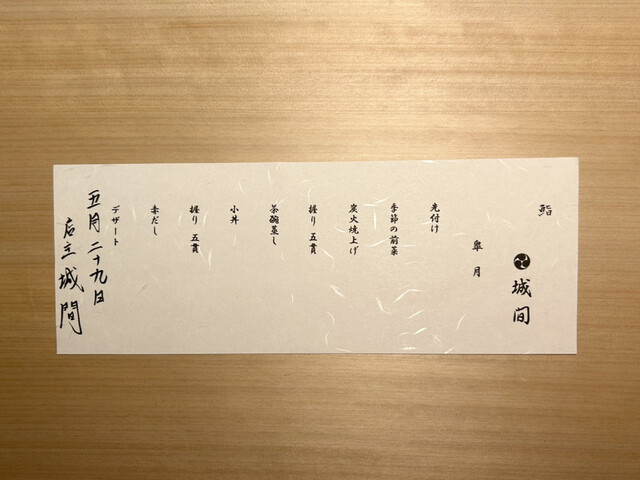 鮨
城間
皐月
先付け
季節の前菜
炭火焼上げ
握り 五貫
茶碗蒸し
小丼
握り 五貫
赤だし
デザート
五月二十九日
店主城間